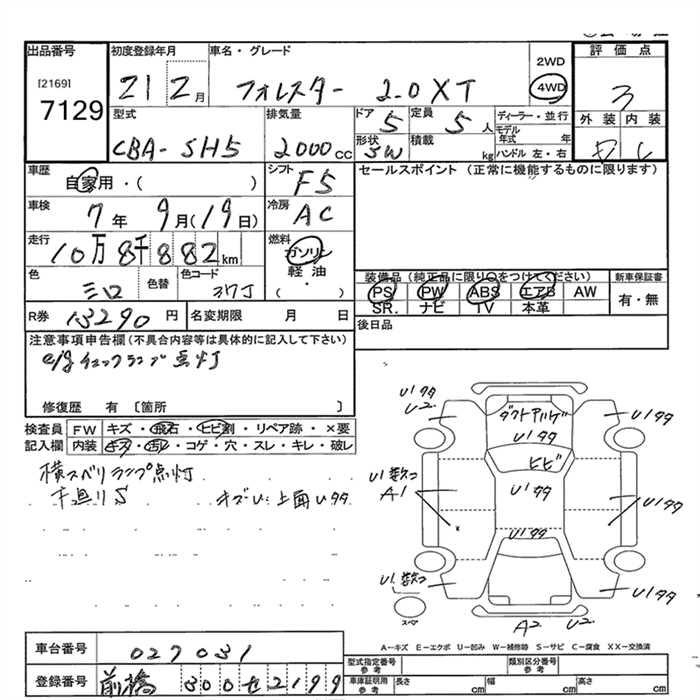 出品番号 初度登録年月 車名・グレード 評価点
[2169] 7129
21 2月 フォレスター 2.0XT 2WD 4WD 3
型式 排気量 ドア 定員 ディーラー・並行 外装 内装
CBA-SH5 2000cc 5 5人 モデル年式 年
形状 SW 積載 kg ハンドル 左・右
車歴 自家用・( ) シフト F5 セールスポイント (正常に機能するものに限ります)
車検 7年9月(19日) 冷房 AC
走行 10万8千882km 燃料 ガソリン 軽油 ( )
色 シロ 色替 色コード 37J
装備品 (純正品に限り○をつけてください) 新車保証書
PS PW ABS エアB AW 有・無
SR. ナビ TV 本革
R券 13290円 名変期限 月 日 後日品
注意事項申告欄 (不具合内容等は具体的に記入して下さい)
e/gチェックランプ点灯
修復歴 有 〔箇所 〕
検査員 FW キズ・飛石・ヒビ割・リペア跡・×要
記入欄 内装 キズ・汚レ・コゲ・穴・スレ・キレ・破レ
横スベリランプ点灯
キズU:上面Uタタ
U1タタ
U2
ダクトアルゲ
U1タタ
U1タタ
ヒビ
A1
U1タタ
U1タタ
U1タタ
U1タタ
スペア
A2 U2
A-キズ E-エクボ U-凹み W-補修跡 S-サビ C-腐食 XX-交換済
車台番号 027031
型式指定番号 参考 類別区分番号 参考
登録番号 前橋 300せ2199
車庫証明用 参考 長さ cm 幅 cm 高さ cm